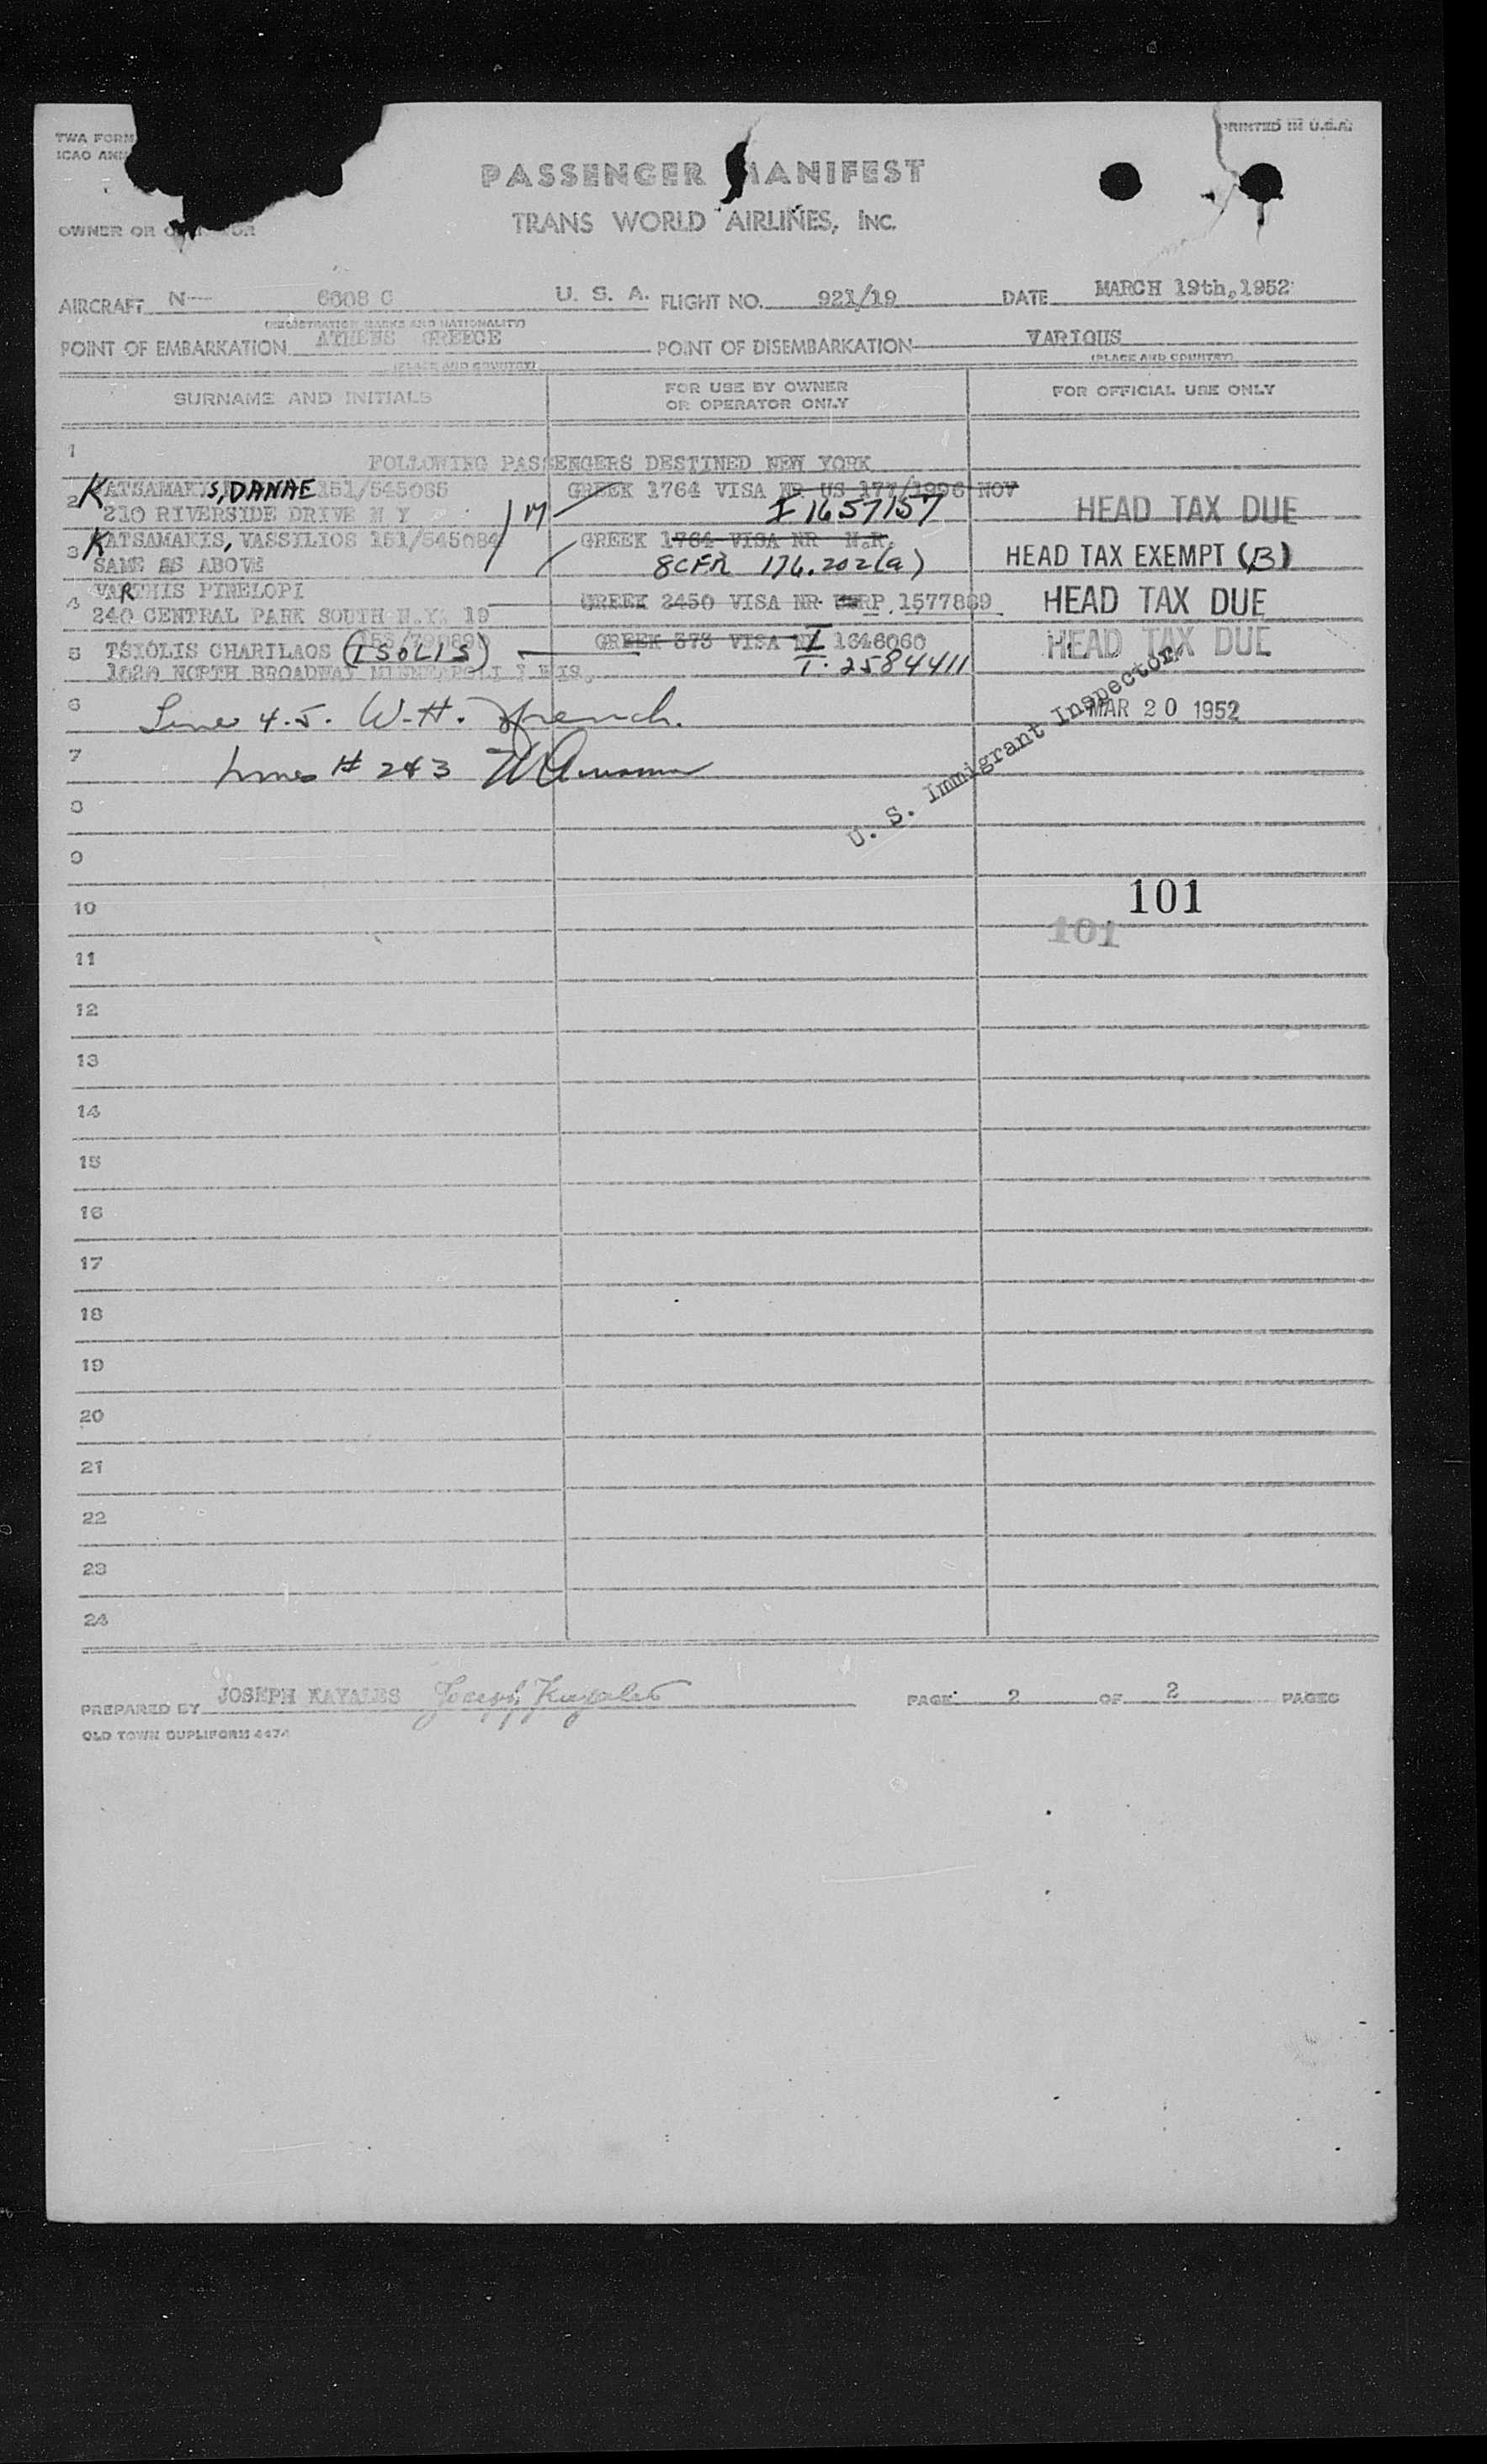 TWA FORM
ICAO ANN
PRINTED IN U.S.A.
PASSENGER MANIFEST
TRANS WORLD AIRLINES, INC.
OWNER OR
AIRCRAFT N-- 6008 C U. S. A. FLIGHT NO. 921/19 DATE MARCH 19th, 1952
(REGISTRATION MARKS AND NATIONALITY)
POINT OF EMBARKATION ATHENS GREECE POINT OF DISEMBARKATION VARIOUS
(PLACE AND COUNTRY) (PLACE AND COUNTRY)
SURNAME AND INITIALS FOR USE BY OWNER OR OPERATOR ONLY FOR OFFICIAL USE ONLY
1
FOLLOWING PASSENGERS DESTINED NEW YORK
2 KATSAMAKIS, DANAE 151/545085 GREEK 1764 VISA NR US 177/1996 NOV
210 RIVERSIDE DRIVE N Y M I 1657157 HEAD TAX DUE
3 KATSAMAKIS, VASSILIOS 151/545084 GREEK 1764 VISA NR N.R.
SAME AS ABOVE 8 CFR 176.202(a) HEAD TAX EXEMPT (B)
4 VARTHIS PINELOPI
240 CENTRAL PARK SOUTH N.Y. 19 GREEK 2450 VISA NR RP 1577889 HEAD TAX DUE
5 TSIOLIS CHARILAOS (TSOLIS) GREEK 373 VISA I 1646060 HEAD TAX DUE
1020 NORTH BROADWAY T. 2584411
6 Line 4.5. W.H. French. MAR 20 1952
7 Lines # 2 & 3
U. S. Immigrant Inspector
8
9
10 101
101
11
12
13
14
15
16
17
18
19
20
21
22
23
24
PREPARED BY JOSEPH KAYALES Joseph Kayales PAGE 2 OF 2 PAGES
OLD TOWN DUPLIFORM 4474